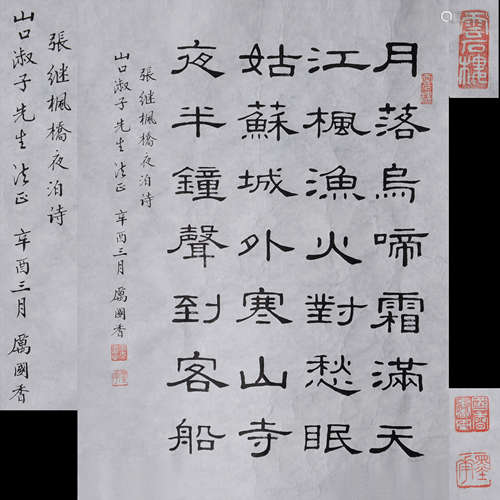 月落烏啼霜滿天
江楓漁火對愁眠
姑蘇城外寒山寺
夜半鐘聲到客船
張继楓橋夜泊诗
山口淑子先生法正 辛酉三月 厲國香
張继楓橋夜泊诗
山口淑子先生法正 辛酉三月 厲國香
雲石樓